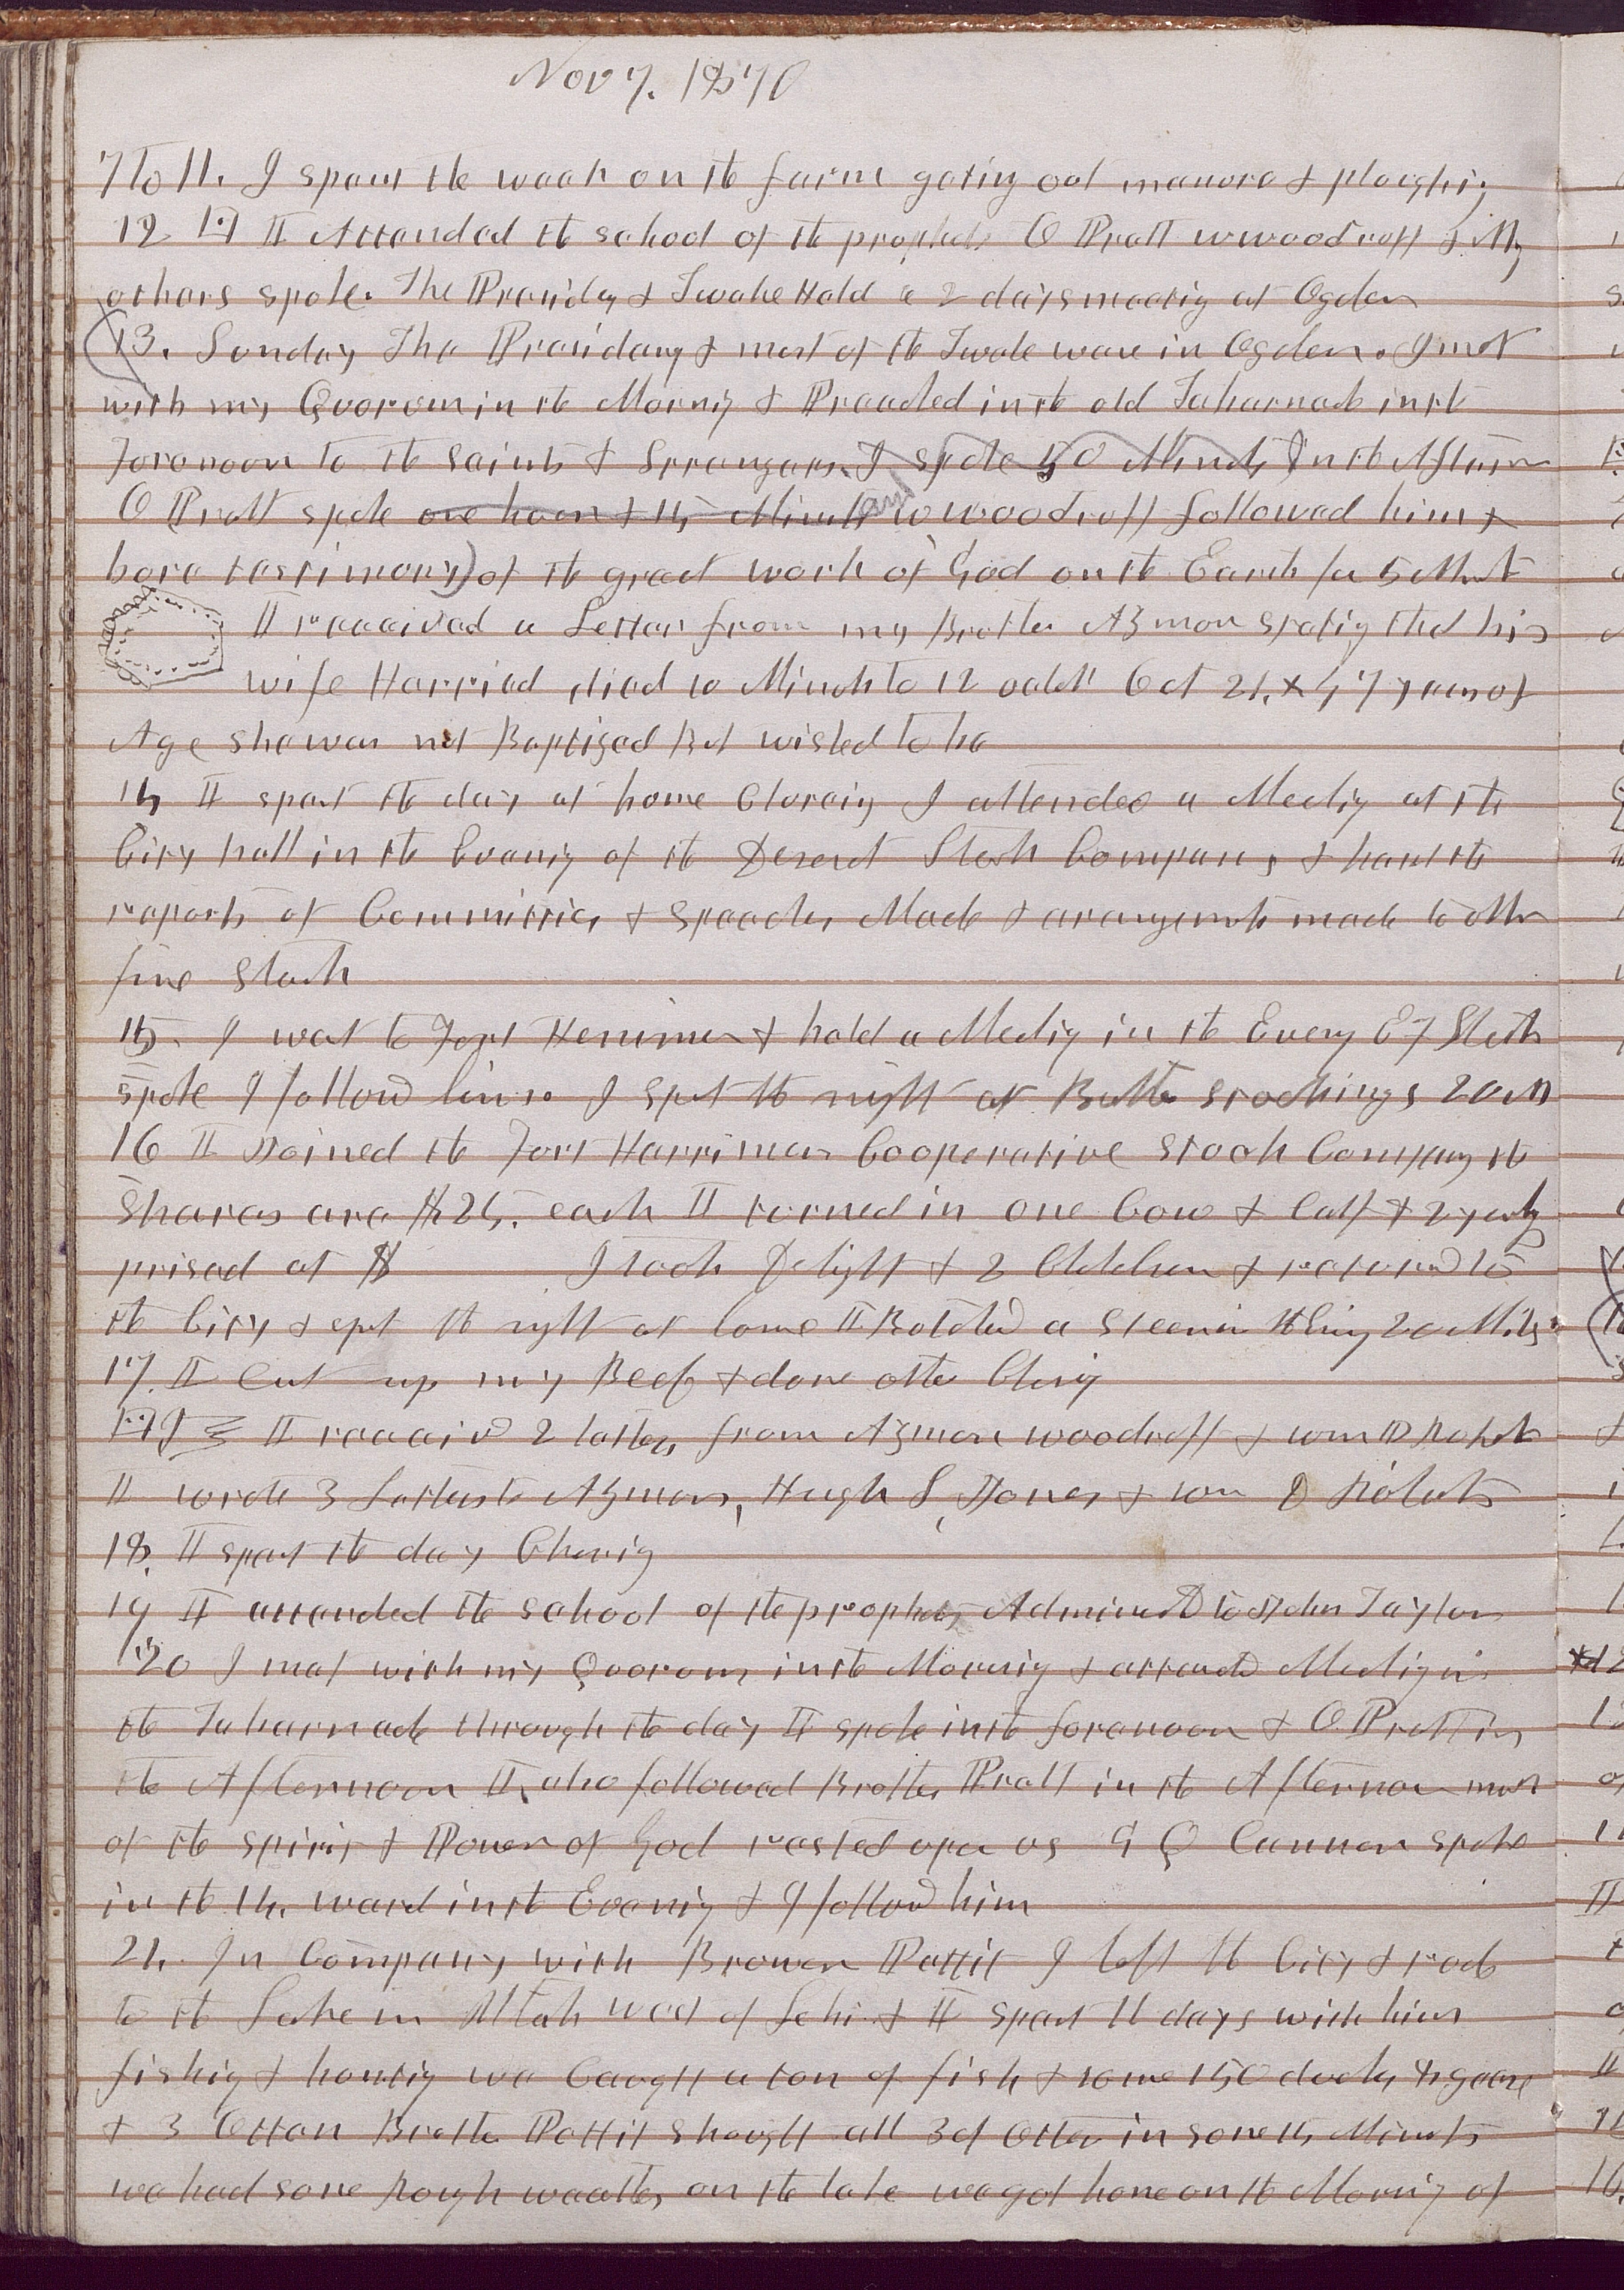 Nov 7. 1870
7 to 11. I spent the week on the farm geting out manure & ploughing
12 I Attended the school of the prophets O Pratt W Woodruff &
others spoke. The Presidency & Twelve Held a 2 days meetig at Ogden
13. Sunday The Presidency & most of the Twelve were in Ogden. I met
with my Quorom in the Mornig & Preached in the old Tabernacle in the
Forenoon to the Saints & Strangers. I spoke 50 Minuts In the Afternoon
O Pratt spoke one hour & 15 Minuts and W Woodruff followed him &
bore testimony of the great work of God on the Earth for 5 Minut
I received a Letter from my Brother Azmon stating that his
wife Harried died 10 Minuts to 12 oclok Oct 21, & 47 years of
Age she was not Baptized But wished to be
14 I spent the day at home Choreig I attended a Meetig at the
City hall in the Evenig of the Deseret Stock Company & heard the
reports of Committies & Speeches Made & arangements made to other
fine Stock
15. I went to Fort Herriman & held a Meetig in the Eveng E F Sheets
spoke I followd him. I spent the night at Brother Stockings 20 M
16 I Joined the Fort Harriman Cooperative Stock Company the
Shares are $25. each I turned in one Cow & Calf & 2 yearly
prised at $ I took Delight & 2 Children & returned to
the City & spent the night at home I Butchered a Steer in the Evnig 20 Mils.
17. I Cut up my Beef & done other Choreig
I receivd 2 letters from Azmon Woodruff & Wm D Roberts
I wrote 3 Letters to Azmon, Hugh S, Jones & Wm D Roberts
18. I spent the day Choreig
19 I attended the school of the prophets, Administerd to John Taylor
20 I met with my Quorom in the Mornig & attended Meetig in
the Tabernacle through the day I spoke in the forenoon & O Pratt in
the Afternoon I also followed Brother Pratt in the Afternoon much
of the spirit & Power of God rested upon us G Q Cannon spoke
in the 14 ward in the Evenig & I followd him
21. In Company with Brower Pettit I left the City & rode
to the Lake in Utah west of Lehi & I spent 11 days with him
fishig & hunting we Caught a ton of fish & some 150 ducks & geese
& 3 Otter Brother Pettit shought all 3 of Otter in some 15 Minuts
we had some Rough weather on the lake we got home on the Mornig of